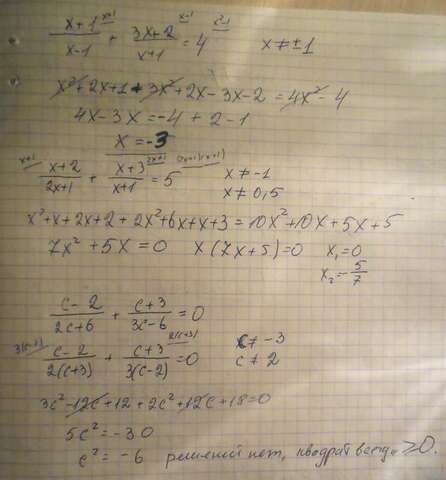 x+1/x-1 ^x+1 + 3x+2/x+1 ^x-1 = 4 ^x²-1   x ≠ ±1
x²+2x+1+3x²+2x-3x-2 = 4x²-4
4x-3x = -4+2-1
x = -3
^x+1 x+2/2x+1 + x+3/x+1 ^2x+1 = 5 ^(2x+1)(x+1)   x ≠ -1
x ≠ 0,5
x²+x+2x+2+2x²+6x+x+3 = 10x²+10x+5x+5
7x²+5x=0   x(7x+5)=0   x₁=0
x₂=-5/7
c-2/2c+6 + c+3/3c-6 = 0
^3(c-2) c-2/2(c+3) + c+3/3(c-2) ^2(c+3) = 0   c ≠ -3
c ≠ 2
3c²-12c+12+2c²+12c+18=0
5c²=-30
c²=-6   решений нет, квадрат всегда ≥0.